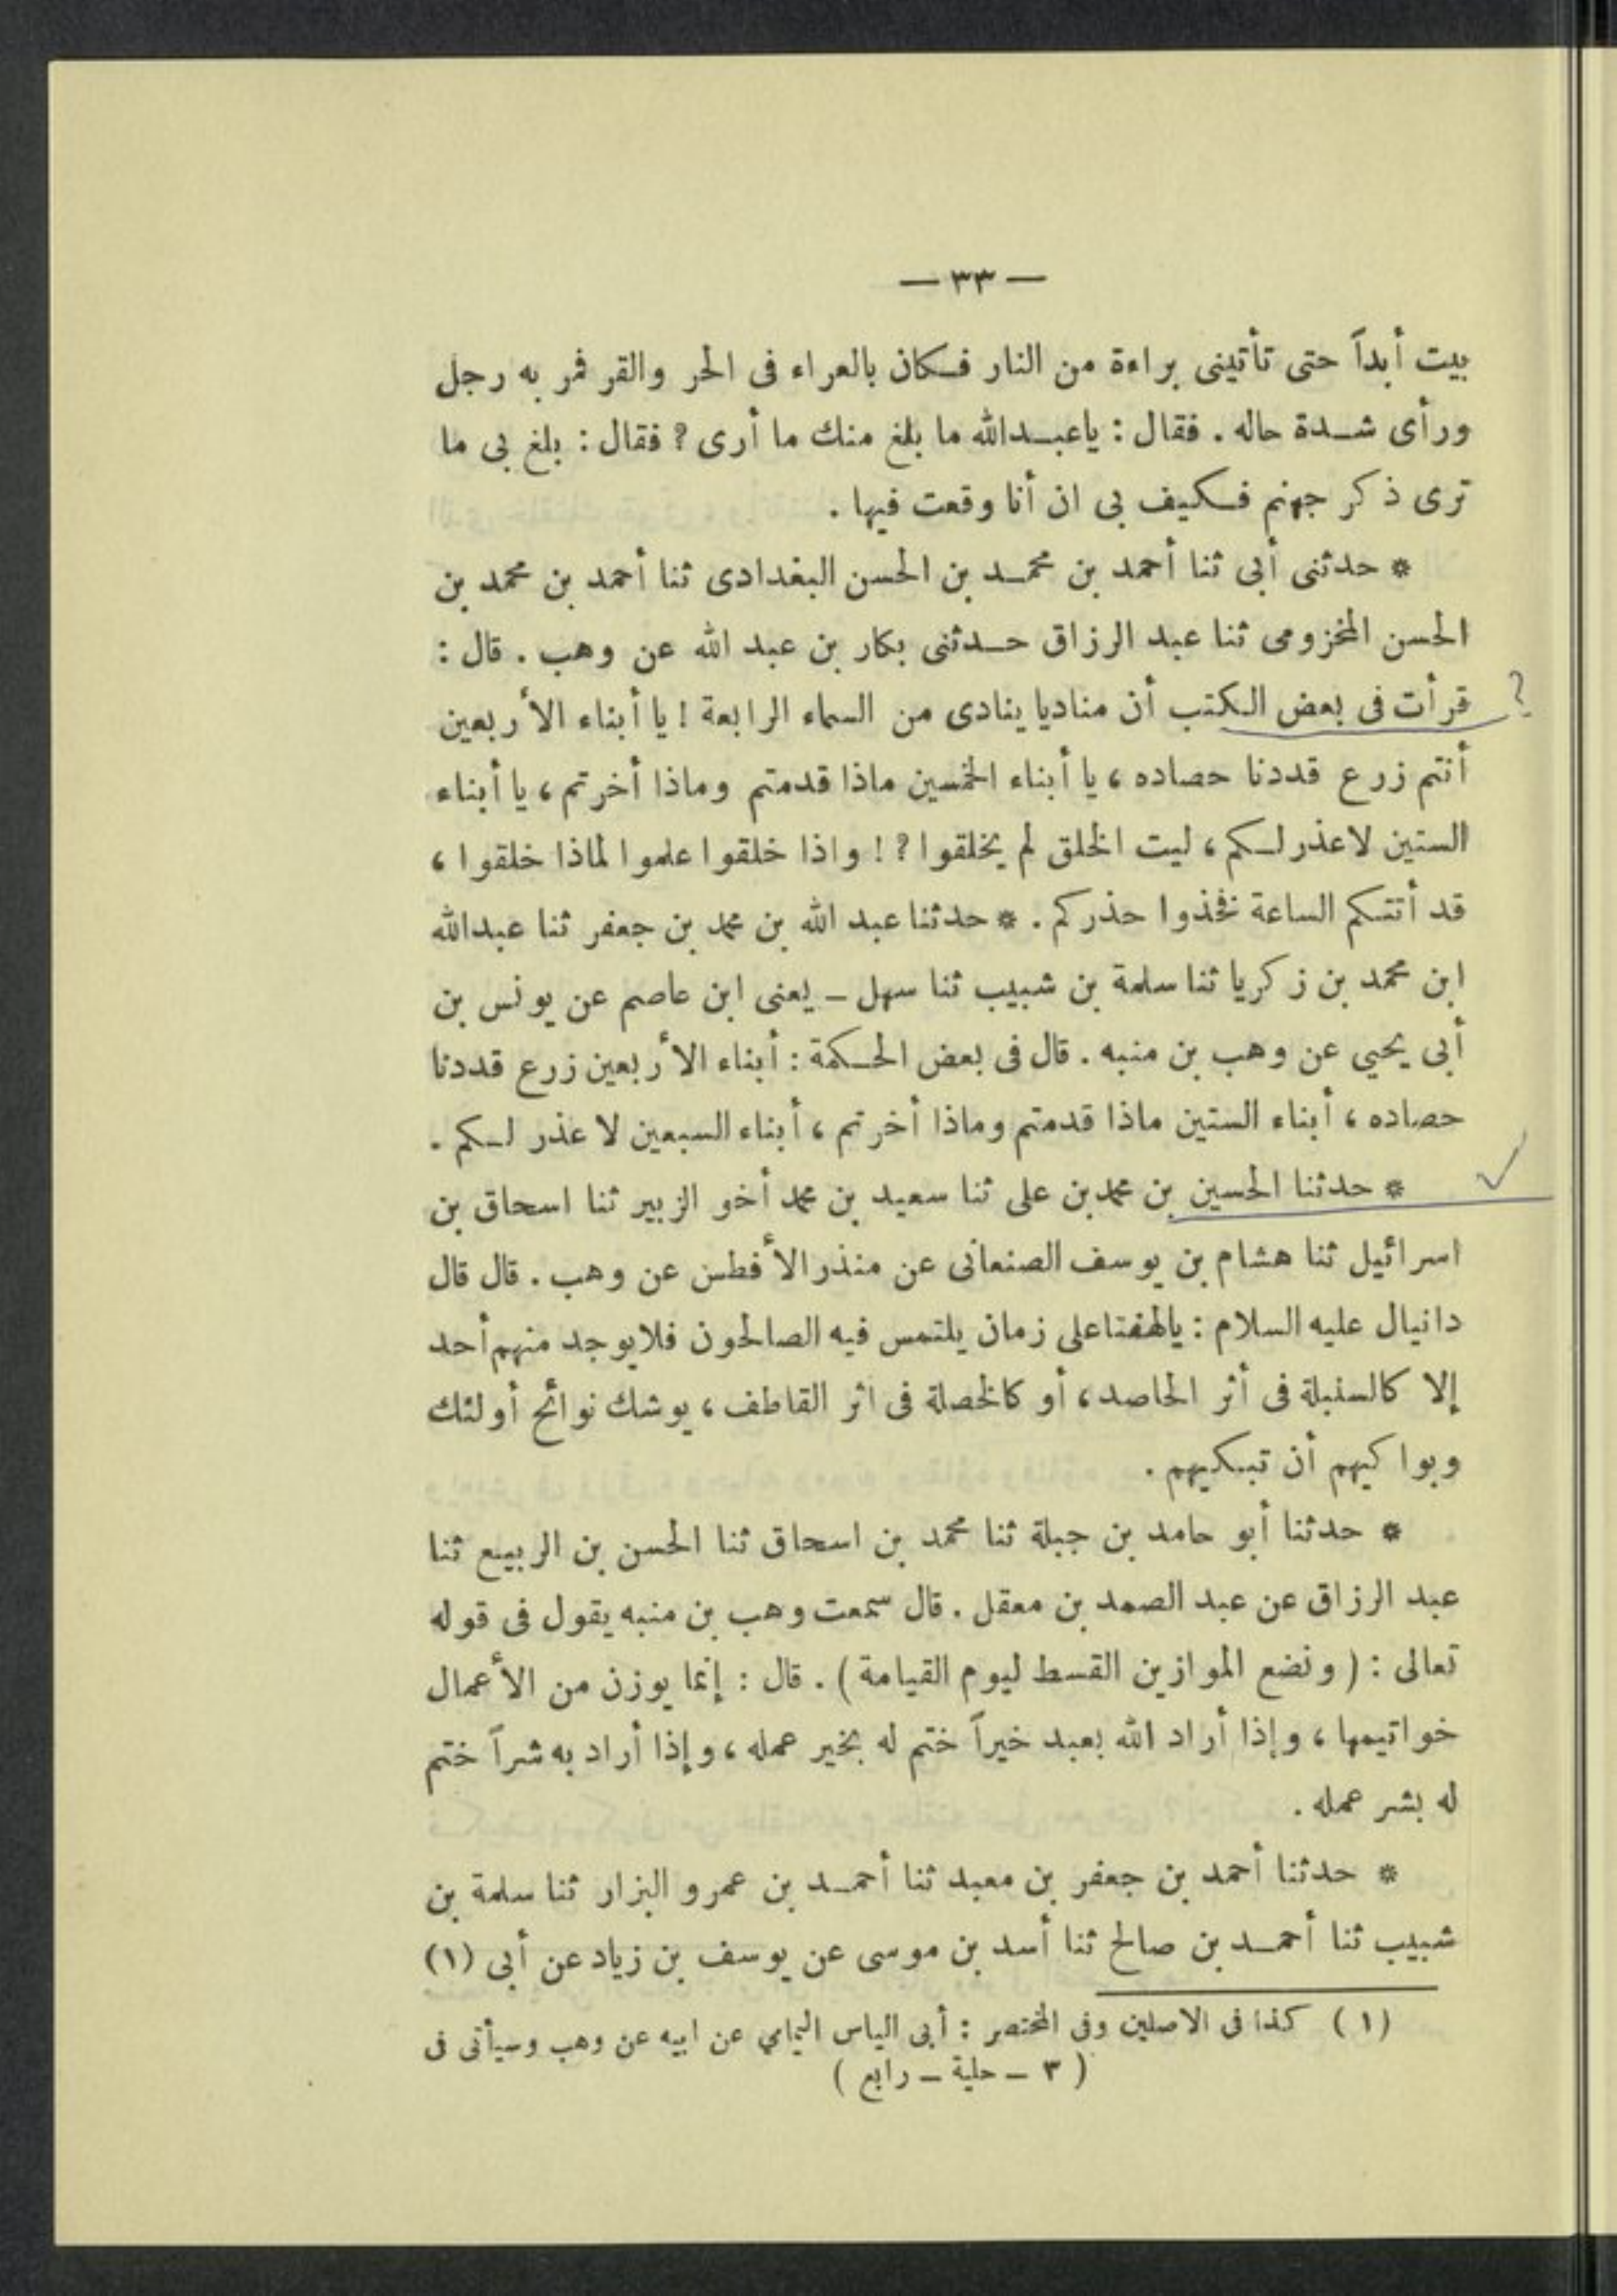 — ٣٣ —
بيت أبداً حتى تأتينى براءة من النار فكان بالعراء فى الحر والقر فمر به رجل
ورأى شدة حاله . فقال : ياعبدالله ما بلغ منك ما أرى ? فقال : بلغ بى ما
ترى ذكر جهنم فكيف بى ان أنا وقعت فيها .
* حدثنى أبى ثنا أحمد بن محمد بن الحسن البغدادى ثنا أحمد بن محمد بن
الحسن المخزومى ثنا عبد الرزاق حدثنى بكار بن عبد الله عن وهب . قال :
قرأت فى بعض الكتب أن مناديا ينادى من السماء الرابعة ! يا أبناء الأربعين ?
أنتم زرع قددنا حصاده ، يا أبناء الخمسين ماذا قدمتم وماذا أخرتم ، يا أبناء
الستين لاعذر لكم ، ليت الخلق لم يخلقوا ? ! واذا خلقوا علموا لماذا خلقوا ،
قد أتتكم الساعة فخذوا حذركم . * حدثنا عبد الله بن محمد بن جعفر ثنا عبدالله
ابن محمد بن زكريا ثنا سلمة بن شبيب ثنا سهل ـ يعنى ابن عاصم عن يونس بن
أبى يحيي عن وهب بن منبه . قال فى بعض الحكمة : أبناء الأربعين زرع قددنا
حصاده ، أبناء الستين ماذا قدمتم وماذا أخرتم ، أبناء السبعين لا عذر لكم .
* حدثنا الحسين بن محمد بن على ثنا سعيد بن محمد أخو الزبير ثنا اسحاق بن ✓
اسرائيل ثنا هشام بن يوسف الصنعانى عن منذر الأفطس عن وهب . قال قال
دانيال عليه السلام : يالهفتاعلى زمان يلتمس فيه الصالحون فلايوجد منهم أحد
إلا كالسنبلة فى أثر الحاصد ، أو كالخصلة فى اثر القاطف ، يوشك نوائح أولئك
وبواكيهم أن تبكيهم .
* حدثنا أبو حامد بن جبلة ثنا محمد بن اسحاق ثنا الحسن بن الربيع ثنا
عبد الرزاق عن عبد الصمد بن معقل . قال سمعت وهب بن منبه يقول فى قوله
تعالى : ( ونضع الموازين القسط ليوم القيامة ) . قال : إنما يوزن من الأعمال
خواتيمها ، وإذا أراد الله بعبد خيراً ختم له بخير عمله ، وإذا أراد به شراً ختم
له بشر عمله .
* حدثنا أحمد بن جعفر بن معبد ثنا أحمد بن عمرو البزار ثنا سلمة بن
شبيب ثنا أحمد بن صالح ثنا أسد بن موسى عن يوسف بن زياد عن أبى (١)
(١) كذا فى الاصلين وفى المختصر : أبى الياس اليمامي عن ابيه عن وهب وسيأتى فى
( ٣ ـ حلية ـ رابع )